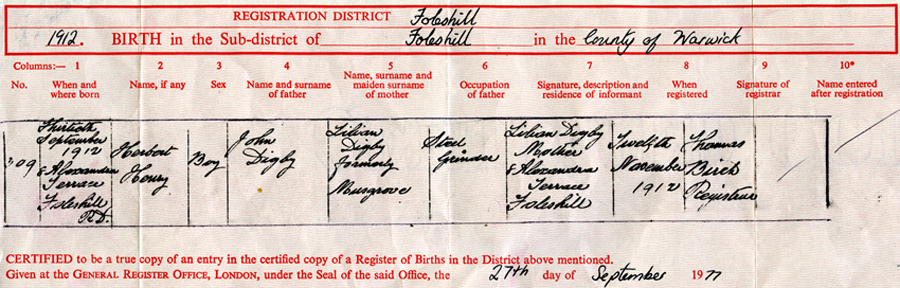 REGISTRATION DISTRICT Foleshill
1912. BIRTH in the Sub-district of Foleshill in the County of Warwick
Columns:— 1 2 3 4 5 6 7 8 9 10*
No. When and where born Name, if any Sex Name and surname of father Name, surname and maiden surname of mother Occupation of father Signature, description and residence of informant When registered Signature of registrar Name entered after registration
309
Thirtieth
September
1912
8 Alexandra
Terrace
Foleshill
R.D.
Herbert
Henry
Boy
John
Digby
Lilian
Digby
formerly
Musgrove
Steel
Grinder
Lilian Digby
Mother
8 Alexandra
Terrace
Foleshill
Twelfth
November
1912
Thomas
Birch
Registrar
CERTIFIED to be a true copy of an entry in the certified copy of a Register of Births in the District above mentioned.
Given at the GENERAL REGISTER OFFICE, LONDON, under the Seal of the said Office, the 27th day of September 1977